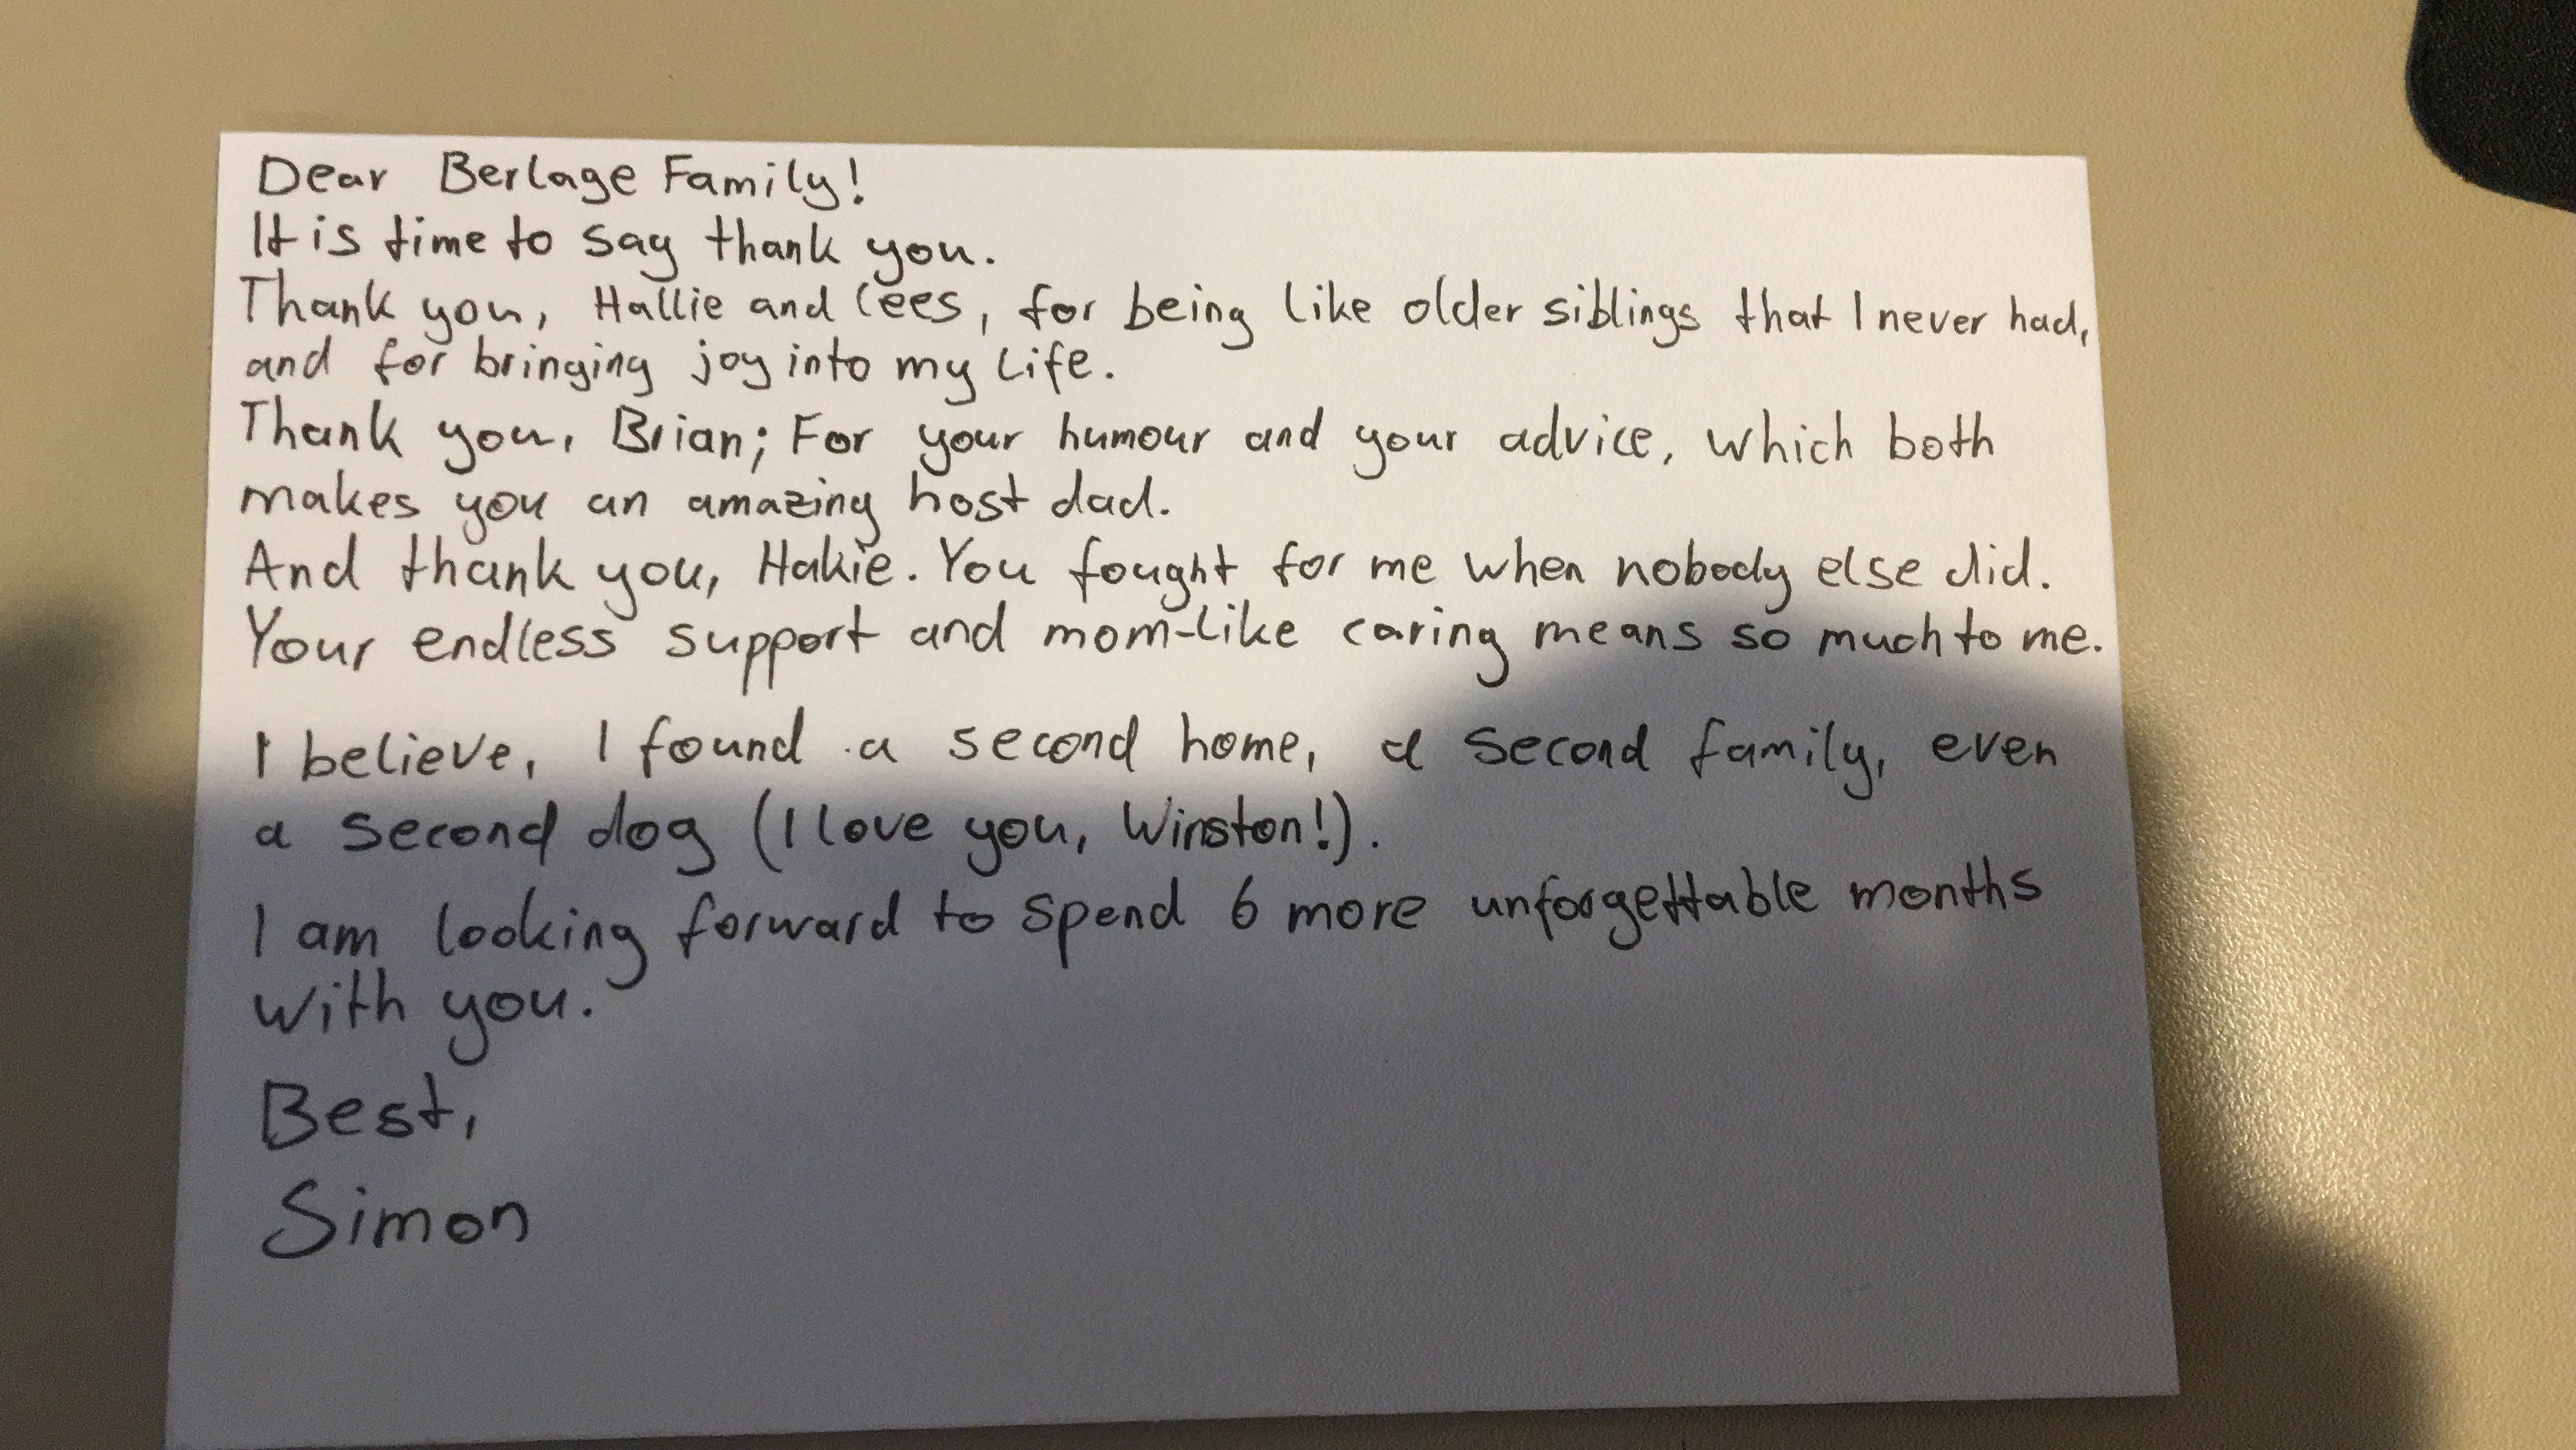 Dear Berlage Family!
It is time to say thank you.
Thank you, Hallie and Cees, for being like older siblings that I never had,
and for bringing joy into my life.
Thank you, Brian; For your humour and your advice, which both
makes you an amazing host dad.
And thank you, Hakie. You fought for me when nobody else did.
Your endless support and mom-like caring means so much to me.
I believe, I found a second home, a second family, even
a second dog (I love you, Winston!).
I am looking forward to spend 6 more unforgettable months
with you.
Best,
Simon